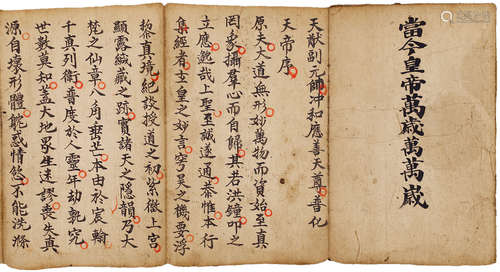 當今皇帝萬歲萬萬歲
天猷副元帥冲和應善天尊普化
天帝序
原夫大道無形妙萬物而資始至真
罔象攝羣心而自歸其若洪鐘叩之
立應邈哉上聖至誠遂通恭惟本行
集經者玉皇之妙言穹昊之機要浮
黎真境絶談授道之初紫微上宮
顯露緘藏之跡實諸天之隱韻乃大
梵之仙章八角垂芒本由於宸翰
千真列衛普度於人靈年劫孰究
世數莫知蓋大地衆生迷謬喪失真
源自壞形體耽惑情慾不能洗滌